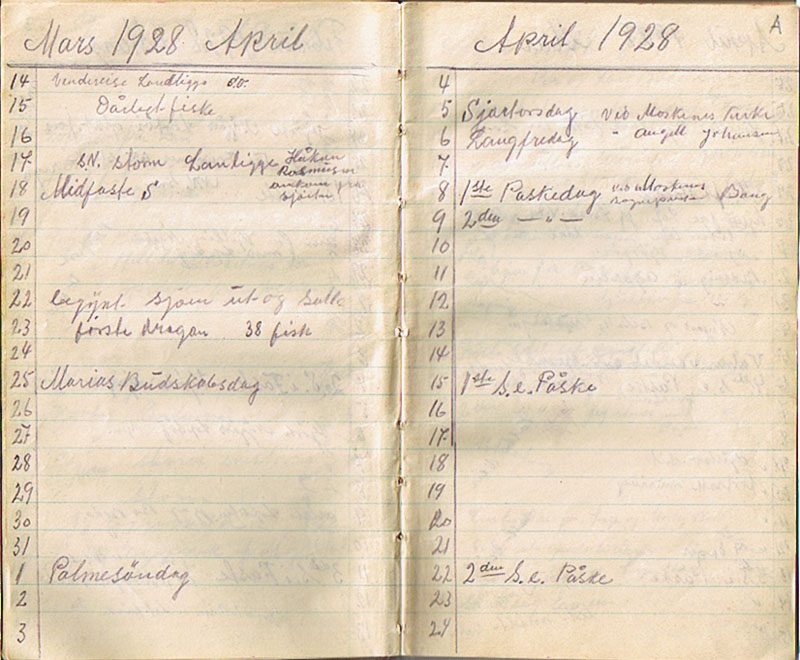 Mars 1928 April
14 Landligge do.
15 Dårligt fiske
16
17 S.V. storm Landligge Håkon
Rasmusen
ankom fra
18 Midfaste S
19
20
21
22 begynt sjøen ut og
23 første dragan 38 fisk
24
25 Marias Budskabsdag
26
27
28
29
30
31
1 Palmesöndag
2
3
A
April 1928
4
5 Sjærtorsdag ved Moskenes Kirke
6 Langfredag " Angell Johansen
7
8 1ste Paskedag ved Moskenes Bang
9 2den — " —
10
11
12
13
14
15 1ste S. e. Påske
16
17
18
19
20
21
22 2den S. e. Påske
23
24